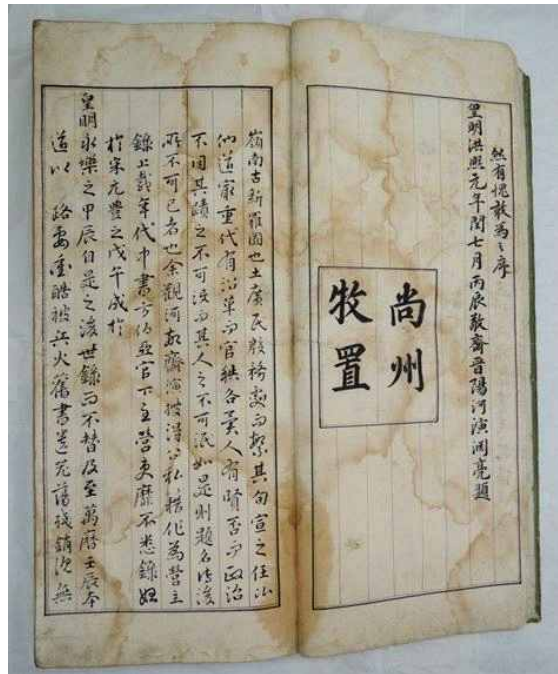 然有愧敢為之序
皇明洪熙元年閏七月丙辰敬齋晉陽河演淵亮題
尚州
牧置
嶺南古新羅國也土廣民殷務劇而繁其旬宣之任以
道家重代有沿革而官秩各異人有賢否而政治
不同其蹟之不可沒而其人之不可泯如是則題名傳後
所不可已者也余觀河敬齋演搜得公私為營主
錄上載年代中書方伯亞官下至營吏靡不悉錄始
於宋元豊之戊午成於
皇明永樂之甲辰自是之後世錄而不替及至萬曆壬辰本
道以路要重酷被兵火舊書遺蕩殘銷沉無